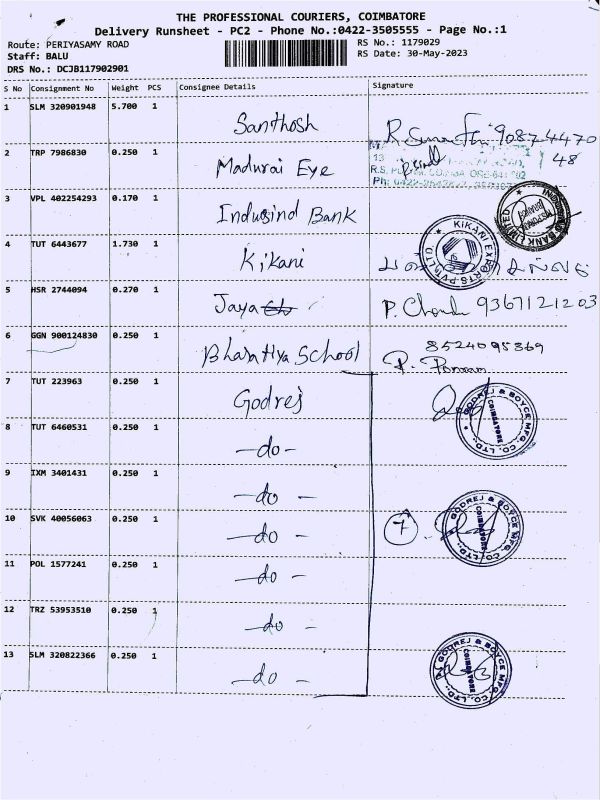 THE PROFESSIONAL COURIERS, COIMBATORE
Delivery Runsheet - PC2 - Phone No.:0422-3505555 - Page No.:1
Route: PERIYASAMY ROAD RS No.: 1179029
Staff: BALU RS Date: 30-May-2023
DRS No.: DCJB117902901
S No Consignment No Weight PCS Consignee Details Signature
1 SLM 320901948 5.700 1 Santhosh 90874470
48
2 TRP 7986830 0.250 1 Madurai Eye
3 VPL 402254293 0.170 1 Indusind Bank
4 TUT 6443677 1.730 1 Kikani KIKANI EXPORTS PVT LTD.
5 HSR 2744094 0.270 1 Jaya P. Chandu 9367121203
6 GGN 900124830 0.250 1 Bharatiya School 8524095869
7 TUT 223963 0.250 1 Godrej GODREJ & BOYCE MFG. CO. LTD., COIMBATORE
8 TUT 6460531 0.250 1 -do-
9 IXM 3401431 0.250 1 -do-
10 SVK 40056063 0.250 1 -do- 7. GODREJ & BOYCE MFG. CO. LTD., COIMBATORE
11 POL 1577241 0.250 1 -do-
12 TRZ 53953510 0.250 1 -do-
13 SLM 320822366 0.250 1 -do- GODREJ & BOYCE MFG. CO. LTD., COIMBATORE